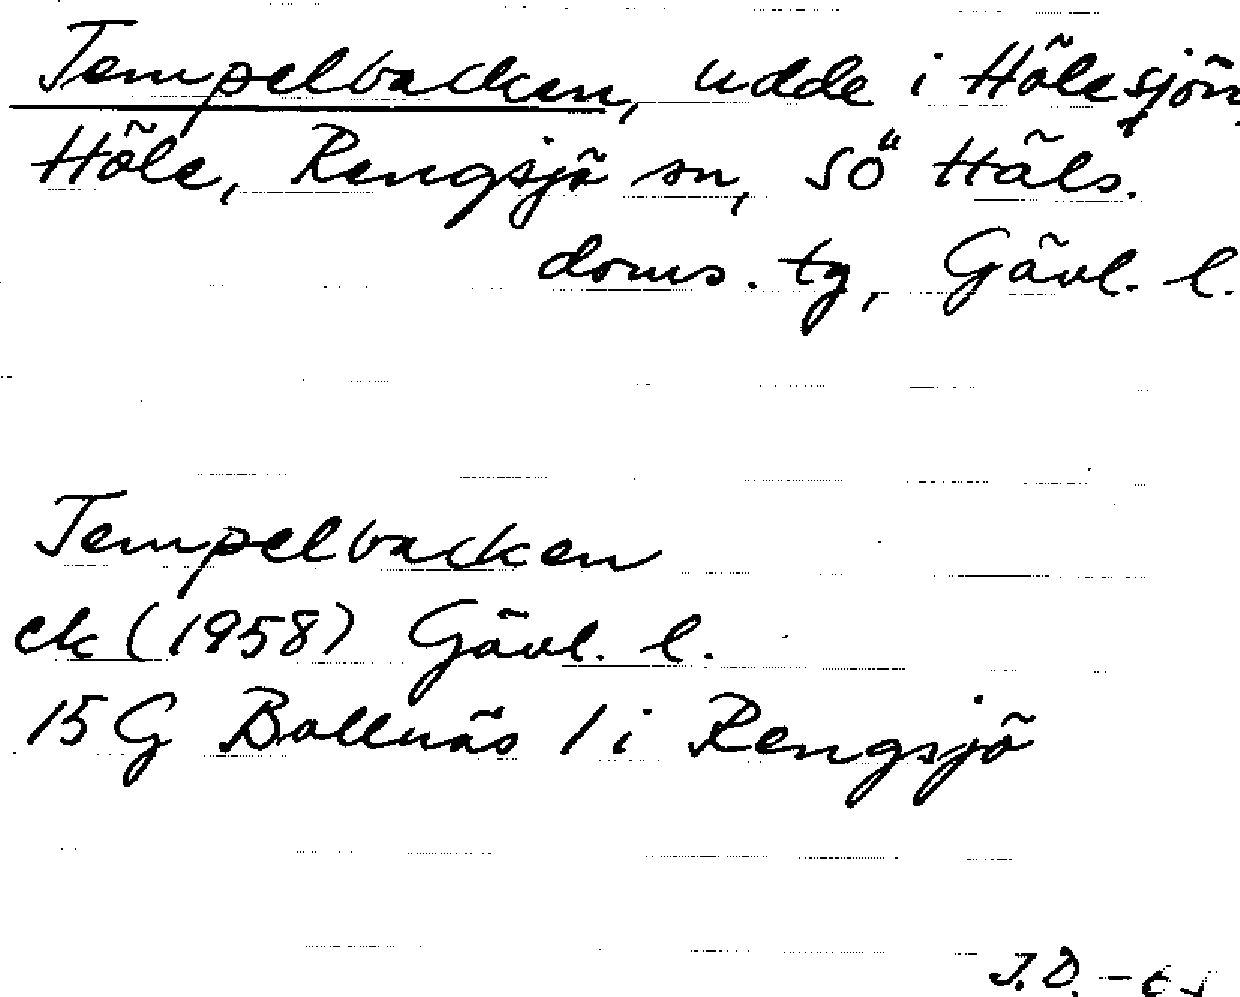 Tempelbacken, udde i Hölesjön,
Höle, Rengsjö sn, SÖ Häls.
doms. tg, Gävl. l.
Tempelbacken
ek (1958) Gävl. l.
15 G Bollnäs 1 i Rengsjö
J.D.